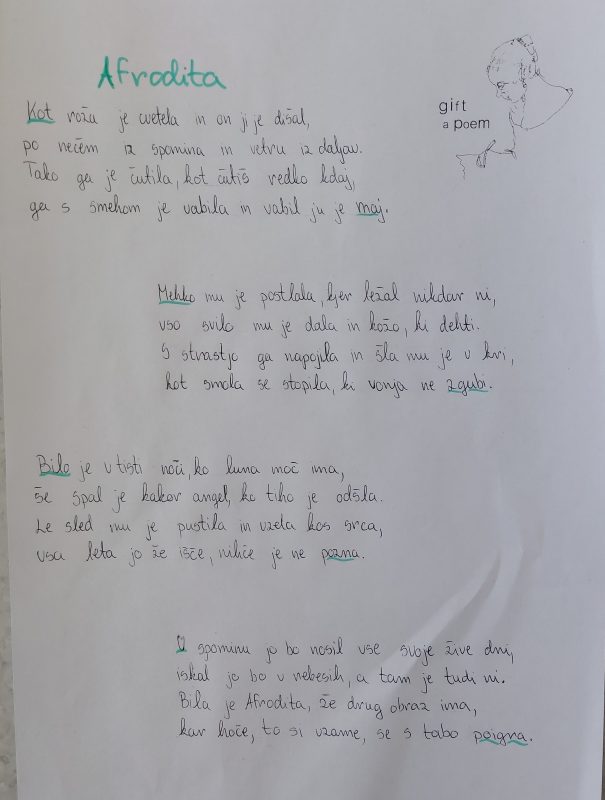 Afrodita
gift
a poem
Kot roža je cvetela in on ji je dišal,
po nečem iz spomina in vetru iz daljav.
Tako ga je čutila, kot čutiš redko kdaj,
ga s smehom je vabila in vabil ju je maj.
Mehko mu je postlala, kjer ležal nikdar ni,
vso svilo mu je dala in kožo, ki dehti.
S strastjo ga napojila in šla mu je v kri,
kot smola se stopila, ki vonja ne zgubi.
Bilo je v tisti noči, ko luna moč ima,
še spal je kakor angel, ko tiho je odšla.
Le sled mu je pustila in vzela kos srca,
vsa leta jo že išče, nihče je ne pozna.
V spominu jo bo nosil vse svoje žive dni,
iskal jo bo v nebesih, a tam je tudi ni.
Bila je Afrodita, že drug obraz ima,
kar hoče, to si vzame, se s tabo poigra.